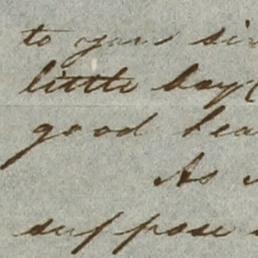 to your si
little boy (
good hea
As
suppose